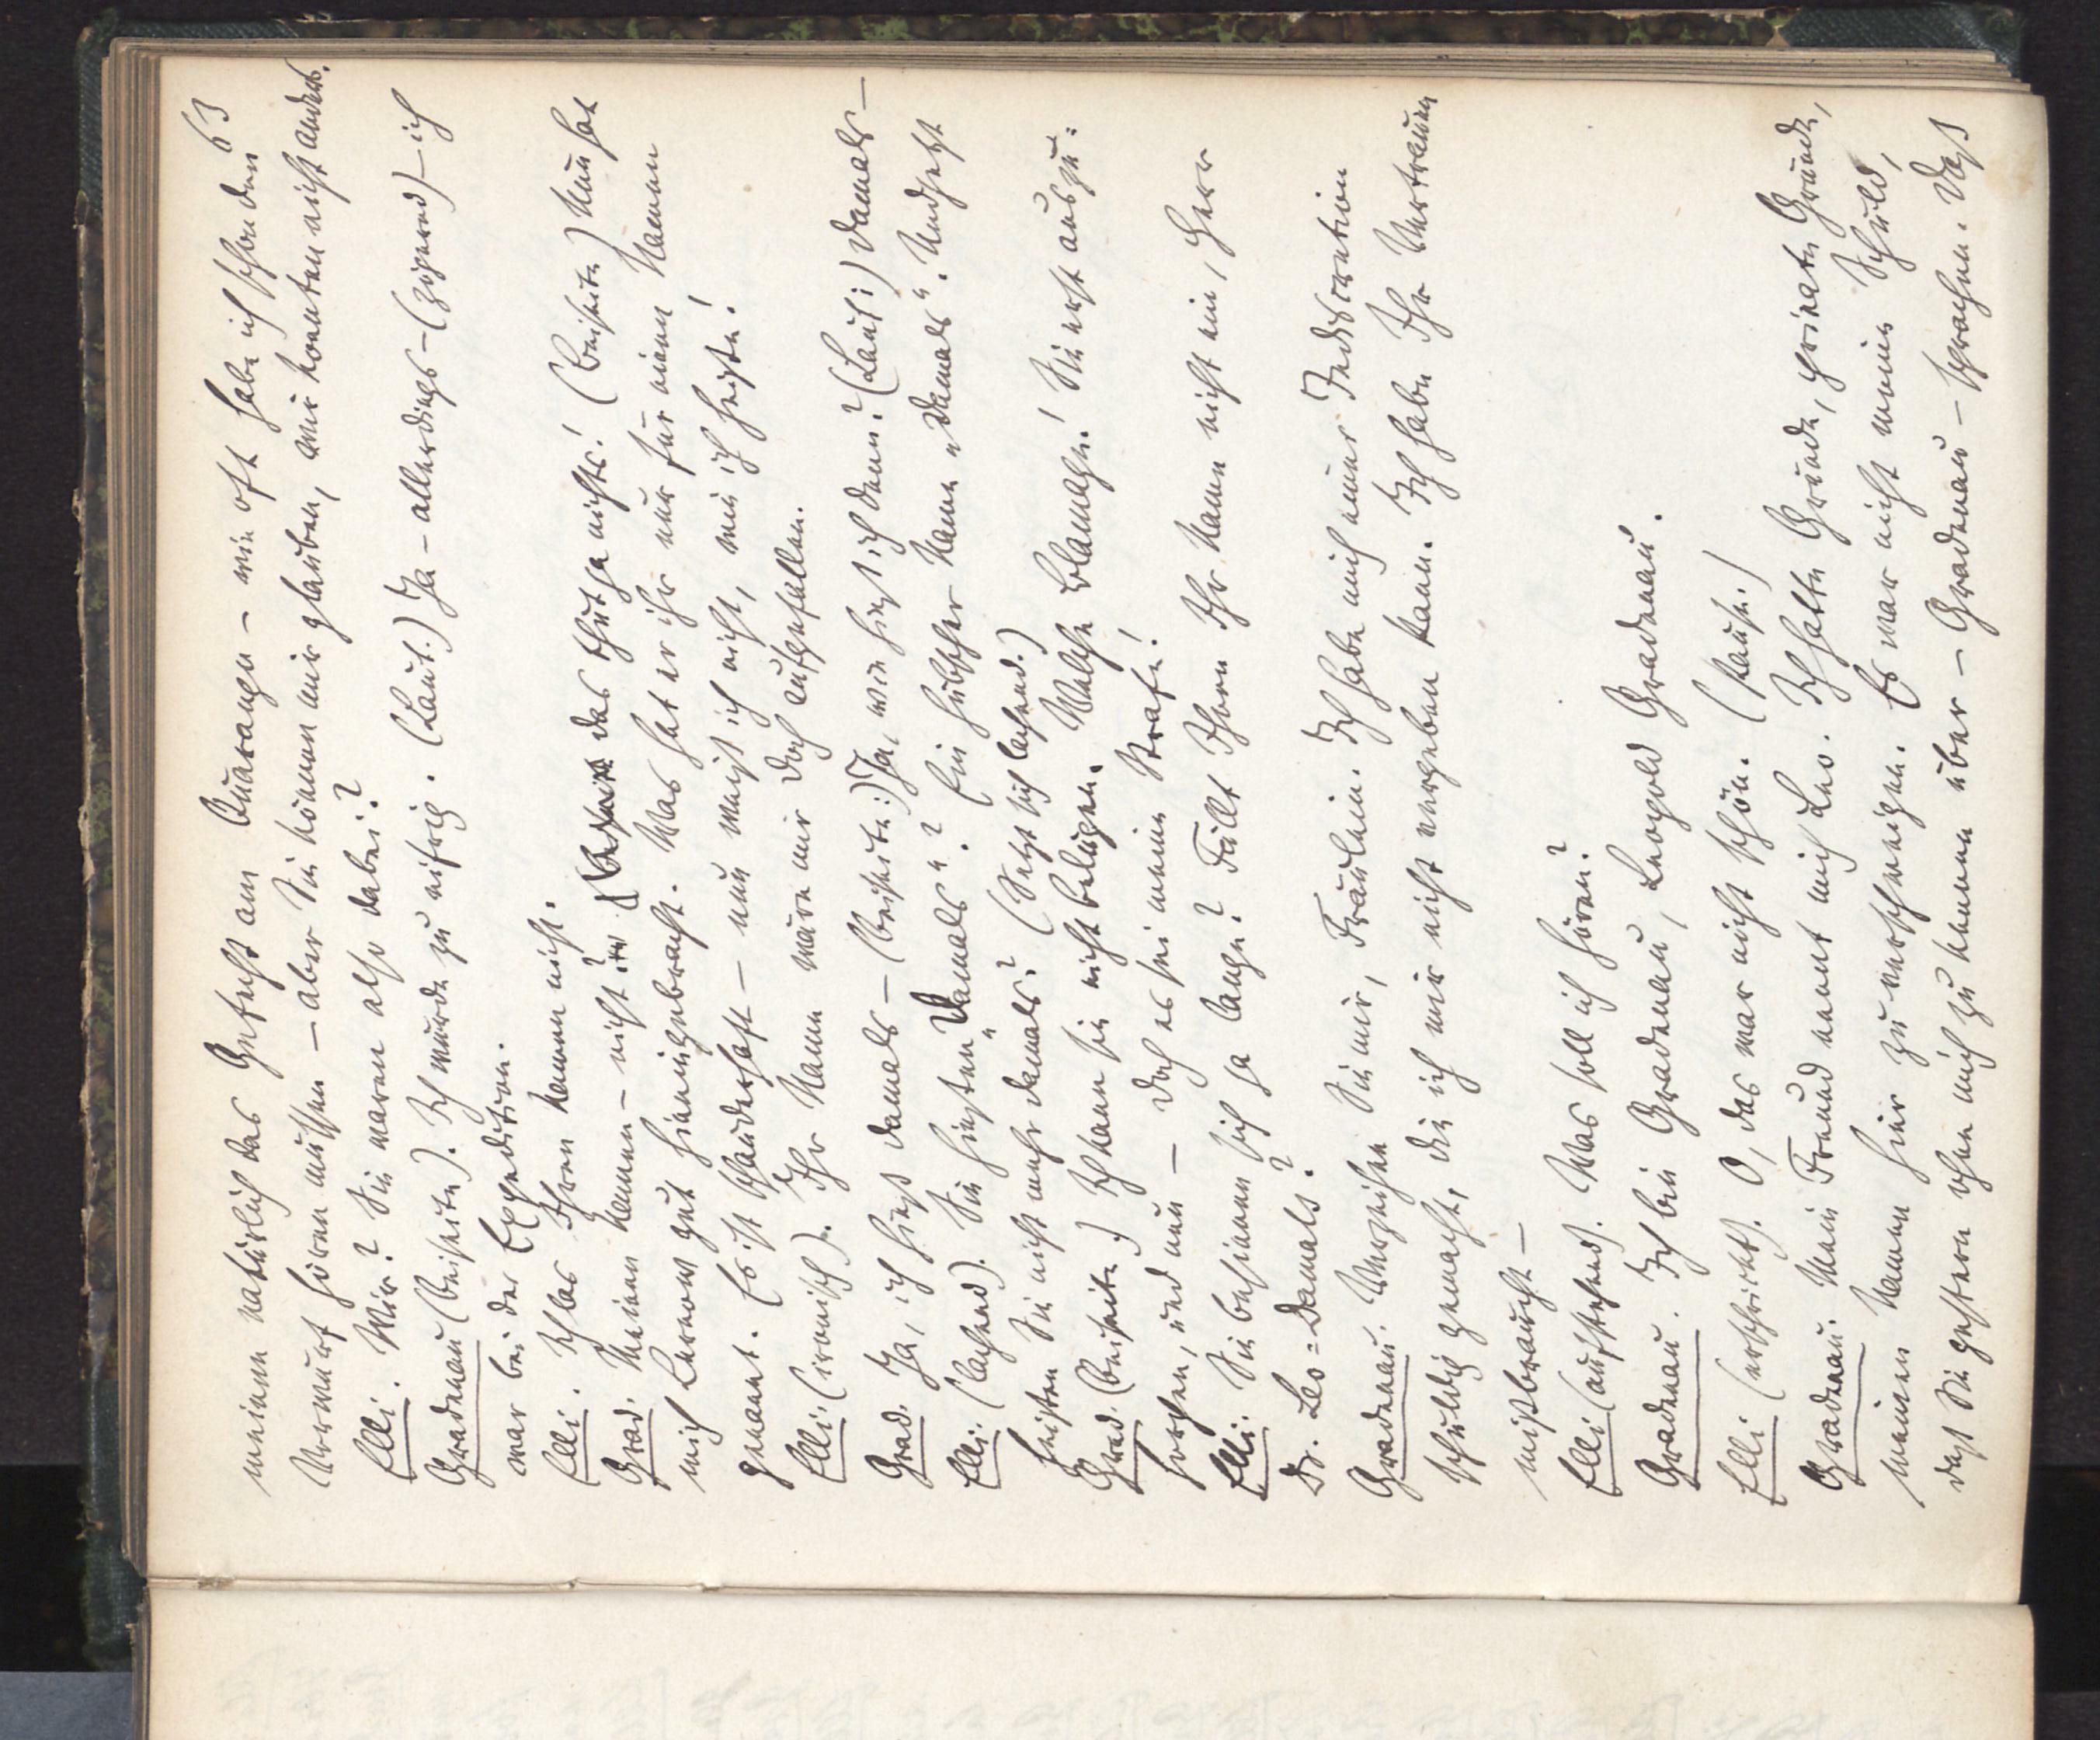 63
meinem natürlich das Gefecht am Quaranga – wie oft habe ich schon den
Vorwurf hören müssen – aber Sie können mir glauben, wir konnten nicht anders.
Elli. Wir? Sie waren also dabei?
Gradenau (beiseite). Ich wurde zu eifrig. (Laut.) Ja – allerdings – (zögernd) – ich
war bei der Expedition.
Elli. Ich las Ihren Namen nicht.
Grad. Meinen Namen – nicht? das thut ja nichts! (Beiseite) Nun hat
mich Lorenz gut hineingebracht. Was hat er ihr nur für einen Namen
genannt. Es ist schauderhaft – nun weiß ich nicht, wie ich heiße!
Elli (ironisch). Ihr Name wäre mir doch aufgefallen.
Grad. Ja, ich hieß damals – (beiseite:) Ja, wie hieß ich denn? (Laut:) damals –
Elli (lachend). Sie hießen „Damals“? Ein hübscher Name „Damals“. Und jetzt
heißen Sie nicht mehr damals? (Setzt sich lachend.)
Grad. (beiseite.) Ich kann sie nicht belügen. Welche Blamage! Sie erst auszu=
horchen, und nun – doch es sei meine Strafe!
Elli. Sie besinnen sich ja lange? Fällt Ihnen Ihr Name nicht ein, Herr
Dr. Leo=Damals?
Gradenau. Verzeihen Sie mir, Fräulein. Ich habe mich einer Indiscretion
schuldig gemacht, die ich mir nicht vergeben kann. Ich habe Ihr Vertrauen
mißbraucht –
Elli (aufstehend). Was soll ich hören?
Gradenau. Ich bin Gradenau, Leopold Gradenau.
Elli (erschrickt). O, das war nicht schön. (Pause.)
Gradenau. Mein Freund nennt mich Leo. Ich hatte Gründe, private Gründe,
meinen Namen hier zu verschweigen. Es war nicht meine Schuld,
daß Sie gestern ohne mich zu kennen über – Gradenau – sprachen. Daß